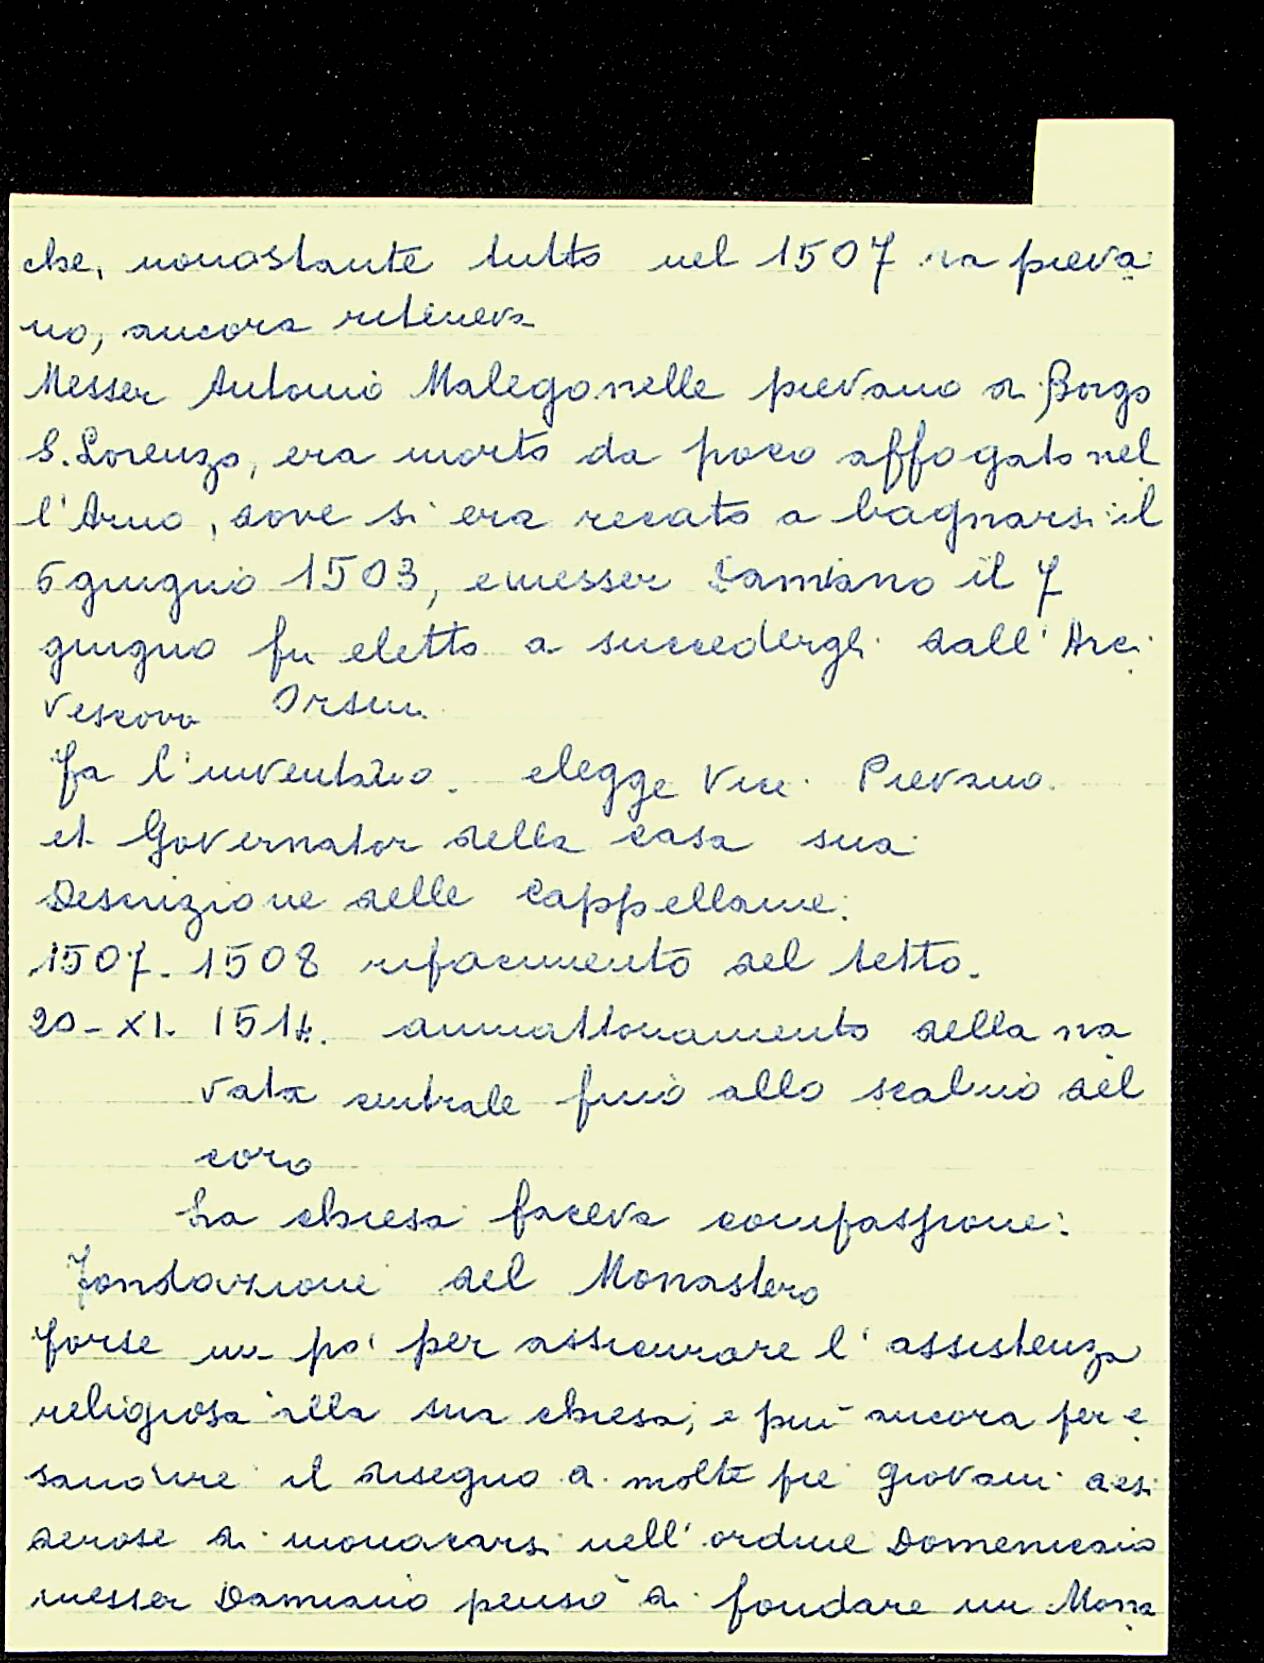 che, nonostante tutto nel 1507 piova
no, ancora riteneva
Messer Antonio Malegonelle pievano di Borgo
S. Lorenzo, era morto da poco affogato nel
l'Arno, dove si era recato a bagnarsi il
6 giugno 1503, e messer Damiano il 7
giugno fu eletto a succedergli dall'Arci
vescovo Orsini
Fa l'inventario. elegge Vice Pievano
et Governator della casa sua
Descrizione delle Cappellanie.
1507-1508 rifacimento del tetto.
20-XI-1514. ammattonamento della na
vata centrale fino allo scalino del
coro
La chiesa faceva compassione:
Fondazione del Monastero
Forse un po' per assicurare l'assistenza
religiosa alla sua chiesa, e più ancora per e
saudire il disegno di molte pie giovani desi
derose di monacarsi nell'ordine Domenicano
messer Damiano pensò di fondare un Mona